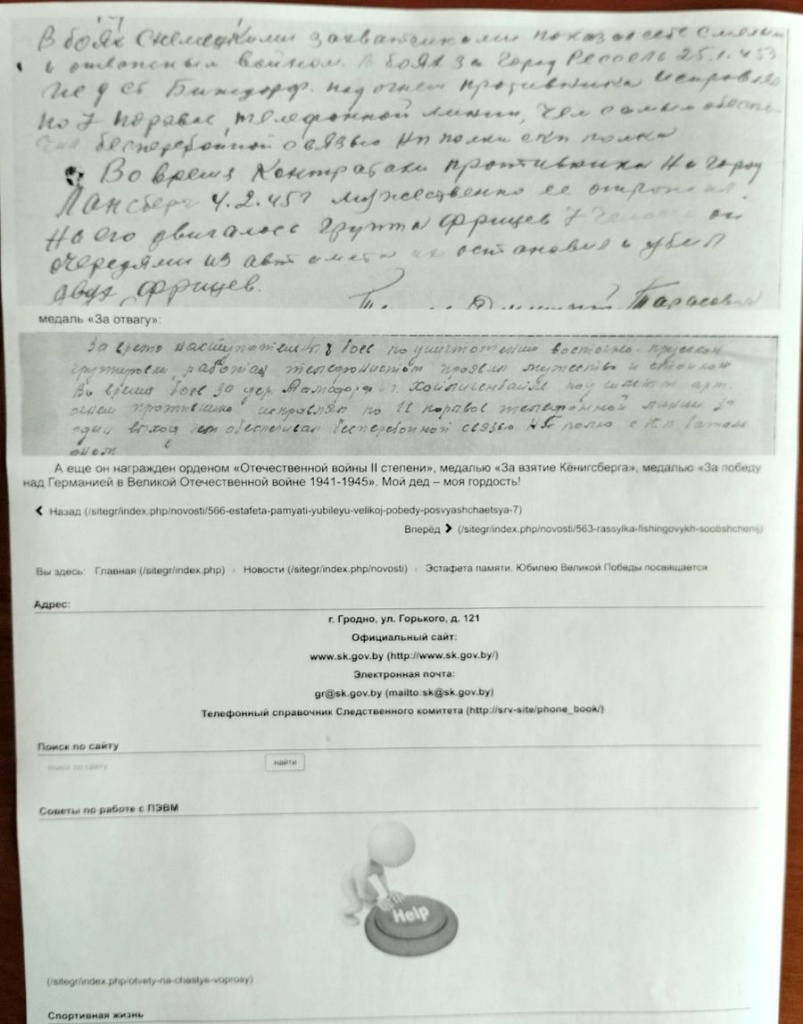 В боях с немецкими захватчиками показал себя смелым
и отважным воином. В боях за город Рессель 25.1.45г
под огнем противника исправлял
по 7 порывов телефонной линии, чем самым обеспе-
чил бесперебойной связью НП полка с КП полка
Во время контратаки противника на город
Лансберг 4.2.45г мужественно ее отражал.
На его двигалась группа фрицев 7 он
очередями из автомата их остановил и убил
двух фрицев.
Тарасович
медаль «За отвагу»:
За время наступательных боев по уничтожению восточно-прусской
группировки работая телефонистом проявил мужество и
Во время боев за дер. г. Хайлигенбайль под арт
огнем противника исправлял по 11 порывов телефонной линии за
один выход чем обеспечивал бесперебойной связью НП полка с КП баталь
оном
А еще он награжден орденом «Отечественной войны II степени», медалью «За взятие Кёнигсберга», медалью «За победу
над Германией в Великой Отечественной войне 1941-1945». Мой дед – моя гордость!
Назад (/sitegr/index.php/novosti/566-estafeta-pamyati-yubileyu-velikoj-pobedy-posvyashchaetsya-7)
Вперёд (/sitegr/index.php/novosti/563-rassylka-fishingovykh-soobshchenij)
Вы здесь: Главная (/sitegr/index.php) Новости (/sitegr/index.php/novosti) Эстафета памяти. Юбилею Великой Победы посвящается
Адрес:
г. Гродно, ул. Горького, д. 121
Официальный сайт:
www.sk.gov.by (http://www.sk.gov.by/)
Электронная почта:
gr@sk.gov.by (mailto:sk@sk.gov.by)
Телефонный справочник Следственного комитета (http://srv-site/phone_book/)
Поиск по сайту
поиск по сайту найти
Советы по работе с ПЭВМ
Help
(/sitegr/index.php/otvety-na-chastye-voprosy)
Спортивная жизнь